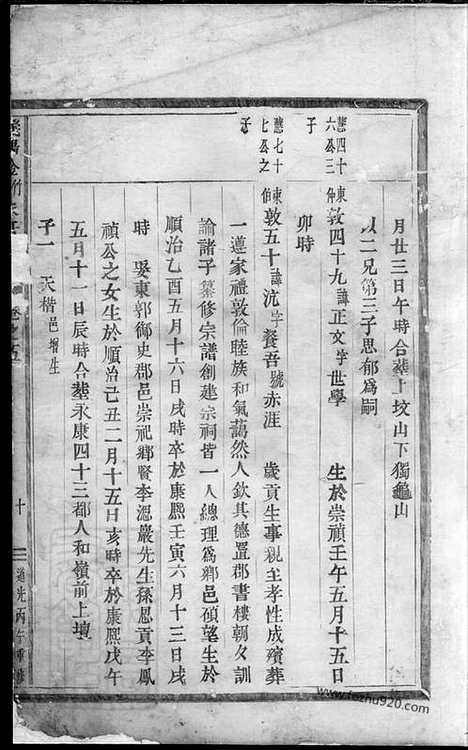 月廿三日午時合塟上坟山下獨龜山
以二兄第三子思郁爲嗣
慧四十六公三子
東仲
敦四十九諱正文字世學 生於崇禎壬午五月十五日
卯時
慧七十七公之子
東伯
敦五十諱沆字餐吾號赤涯 歲貢生事親至孝性成殯葬
一遵家禮敦倫睦族和氣藹然人欽其德置郡書樓朝夕訓
諭諸子纂修宗譜創建宗祠皆一人總理爲鄉邑碩望生於
順治乙酉五月十六日戌時卒於康熙壬寅六月十三日戌
時 娶東郭御史郡邑崇祀鄉賢李滬嚴先生孫恩貢李鳳
禎公之女生於順治己丑二月十五日亥時卒於康熙戊午
五月十一日辰時合塟永康四十三都人和嶺前上壇
子一 天楷邑增生
卷之五
十
道光丙午重修
www.fozhu920.com